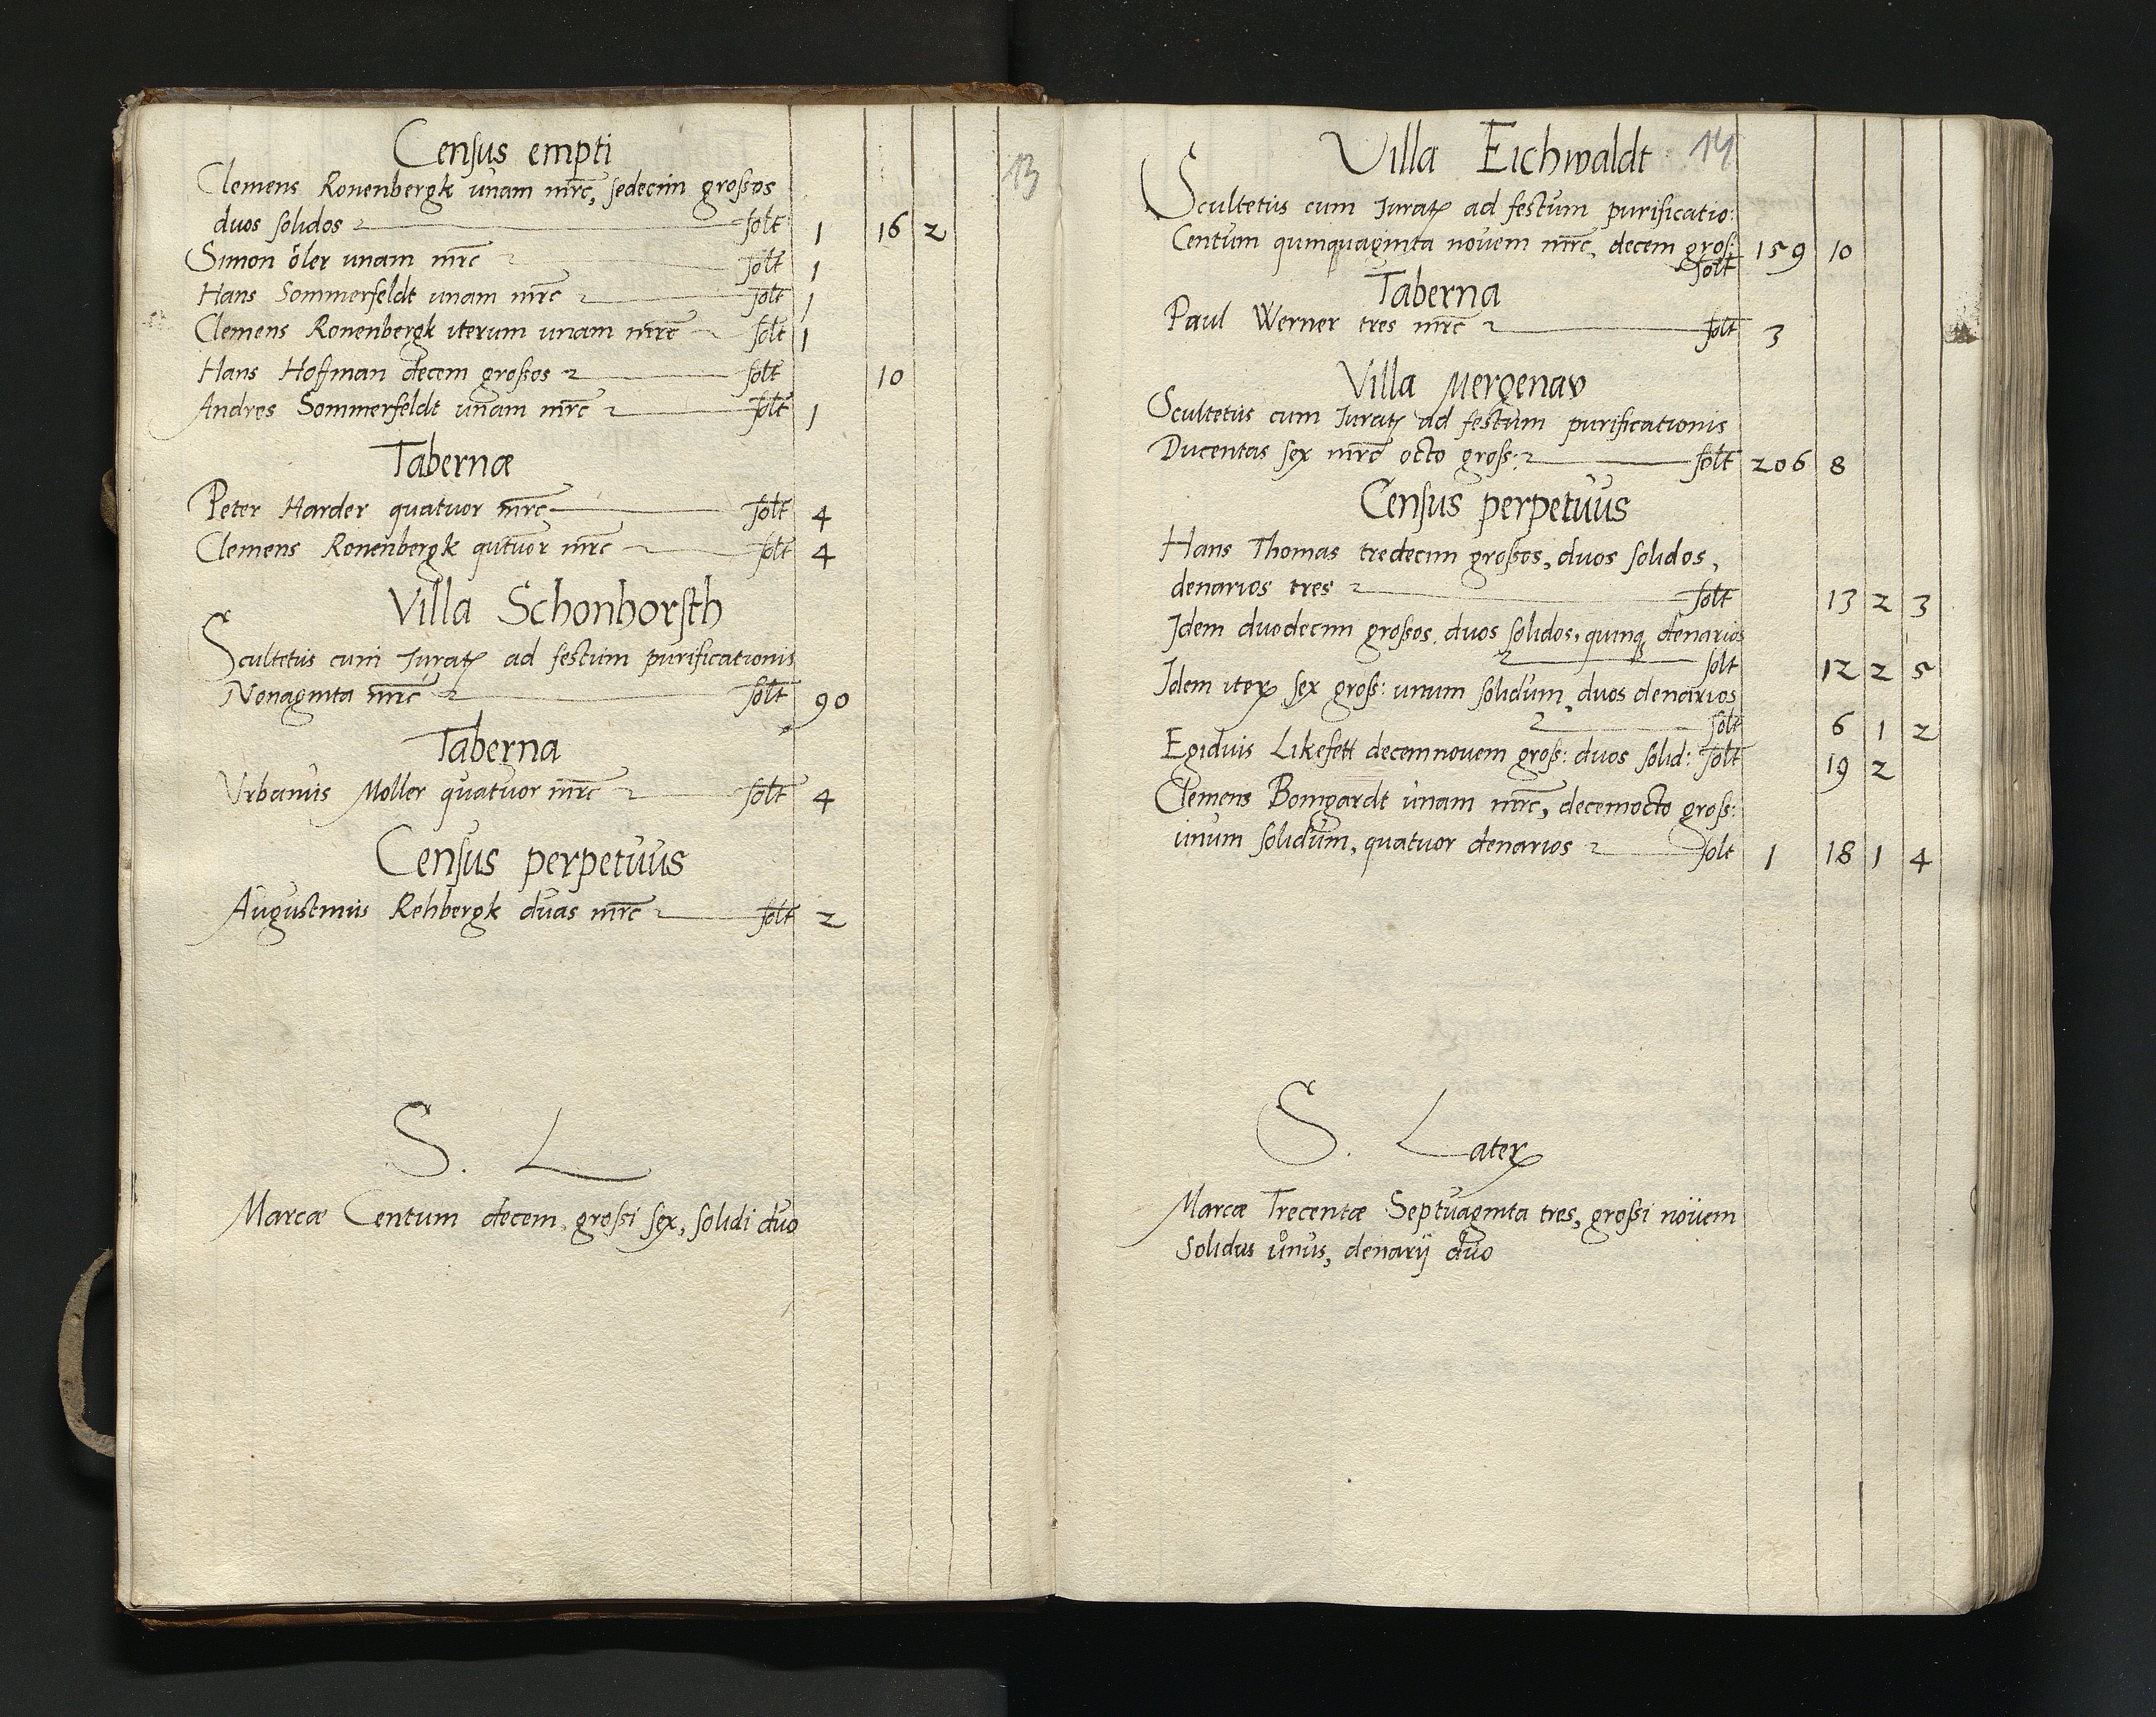 13
Census empti
Clemens Ronenbergk unam mrc, sedecim grossos
duos solidos solt 1 16 2
Simon öler unam mrc solt 1
Hans Sommerfeldt unam mrc solt 1
Clemens Ronenbergk iterum unam mrc solt 1
Hans Hoffman decem grossos solt 10
Andres Sommerfeldt unam mrc solt 1
Tabernæ
Peter Harder quatuor mrc solt 4
Clemens Ronenbergk qutuor mrc solt 4
Villa Schonhorsth
Scultetus cum Jurat ad festum purificationis
Nonaginta mrc solt 90
Taberna
Urbanus Moller quatuor mrc solt 4
Census perpetuus
Augustinus Rehbergk duas mrc solt 2
S. L
Marcæ Centum decem, grossi sex, solidi duo
14
Villa Eichwaldt
Scultetus cum Jurat ad festum purificatio:
Centum quinquaginta novem mrc, decem gross: 159 10
solt
Taberna
Paul Werner tres mrc solt 3
Villa Mergenav
Scultetus cum Jurat ad festum purificationis
Ducentas sex mrc octo gross: solt 206 8
Census perpetuus
Hans Thomas tredecim grossos, duos solidos,
denarios tres solt 13 2 3
Idem duodecim grossos duos solidos, quinq denarios
solt 12 2 5
Idem iter sex gross: unum solidum, duos denarios
solt 6 1 2
Egidius Likefett decemnovem gross: duos solid: solt 19 2
Clemens Bomgardt unam mrc, decemocto gross:
unum solidum, quatuor denarios solt 1 18 1 4
S. Later
Marcæ Trecentæ Septuaginta tres, grossi novem
Solidus unus, denarij duo